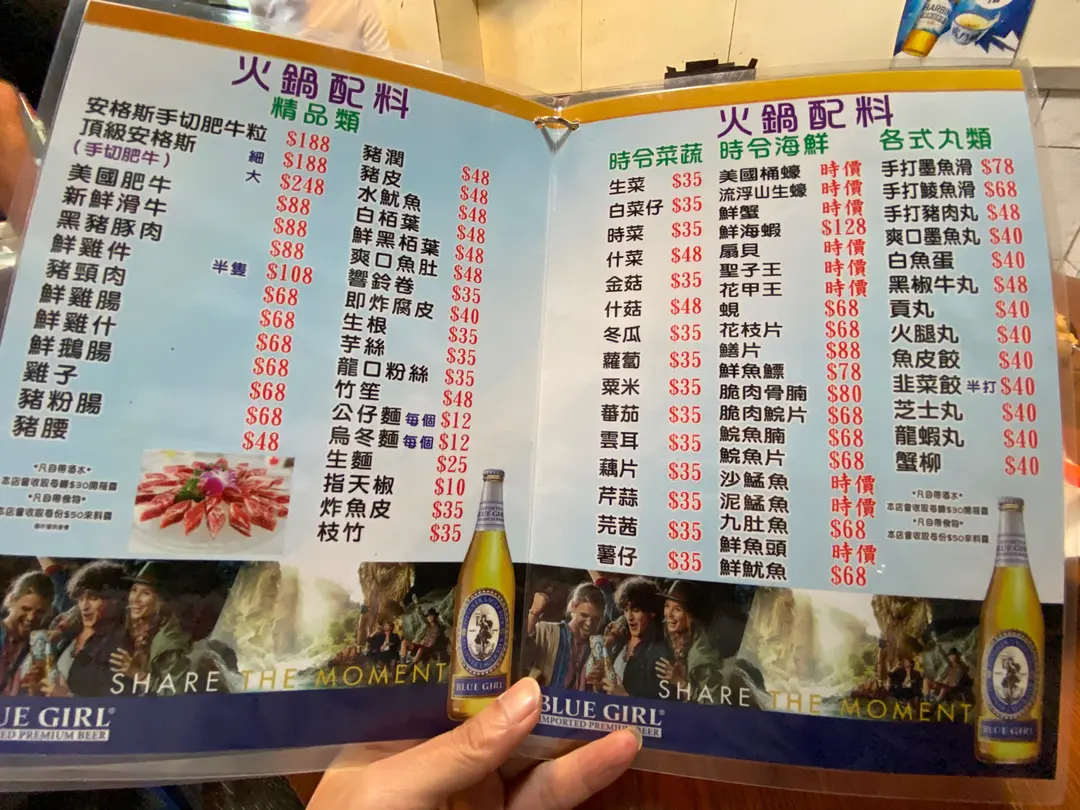 火鍋配料
精品類
安格斯手切肥牛粒 $188
頂級安格斯 細 $188
(手切肥牛) 大 $248
美國肥牛 $88
新鮮滑牛 $88
黑豬豚肉 $88
鮮雞件 半隻 $108
豬頸肉 $68
鮮雞腸 $68
鮮雞什 $68
鮮鵝腸 $68
雞子 $68
豬粉腸 $68
豬腰 $48
*凡自帶酒水*
本店會收取每轉$30開瓶費
*凡自帶食物*
本店會收取每份$50來料費
豬潤 $48
豬皮 $48
水魷魚 $48
白栢葉 $48
鮮黑栢葉 $48
爽口魚肚 $48
響鈴卷 $35
即炸腐皮 $40
生根 $35
芋絲 $35
龍口粉絲 $35
竹笙 $48
公仔麵 每個 $12
烏冬麵 每個 $12
生麵 $25
指天椒 $10
炸魚皮 $35
枝竹 $35
SHARE THE MOMENT
BLUE GIRL
UE GIRL®
ED PREMIUM BEER
火鍋配料
時令菜蔬
生菜 $35
白菜仔 $35
時菜 $35
什菜 $48
金菇 $35
什菇 $48
冬瓜 $35
蘿蔔 $35
粟米 $35
蕃茄 $35
雲耳 $35
藕片 $35
芹蒜 $35
芫茜 $35
薯仔 $35
時令海鮮
美國桶蠔 時價
流浮山生蠔 時價
鮮蟹 時價
鮮海蝦 $128
扇貝 時價
聖子王 時價
花甲王 時價
蜆 $68
花枝片 $68
鱔片 $88
鮮魚鰾 $78
脆肉骨腩 $80
脆肉鯇片 $68
鯇魚腩 $68
鯇魚片 $68
沙鯭魚 時價
泥鯭魚 時價
九肚魚 $68
鮮魚頭 時價
鮮魷魚 $68
各式丸類
手打墨魚滑 $78
手打鯪魚滑 $68
手打豬肉丸 $48
爽口墨魚丸 $40
白魚蛋 $40
黑椒牛丸 $48
貢丸 $40
火腿丸 $40
魚皮餃 $40
韭菜餃 半打 $40
芝士丸 $40
龍蝦丸 $40
蟹柳 $40
*凡自帶酒水*
本店會收取每轉$30開瓶費
*凡自帶食物*
本店會收取每份$50來料費
SHARE THE MOMENT
BLUE GIRL
BLUE GIRL®
IMPORTED PREMIUM BEER